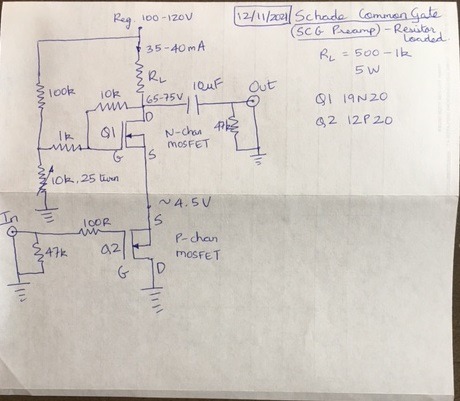 Reg 100-120V
12/11/2021
Schade Common Gate
(SCG Preamp) - Resistor
loaded.
35-40mA
RL = 500-1k
5W
RL
100k
10k
65-75V
10uF
Out
Q1 19N20
D
Q1
1k
N-chan
MOSFET
47k
Q2 12P20
G
S
10k, 25 turn
~4.5V
In
S
100R
P-chan
MOSFET
Q2
47k
G
D